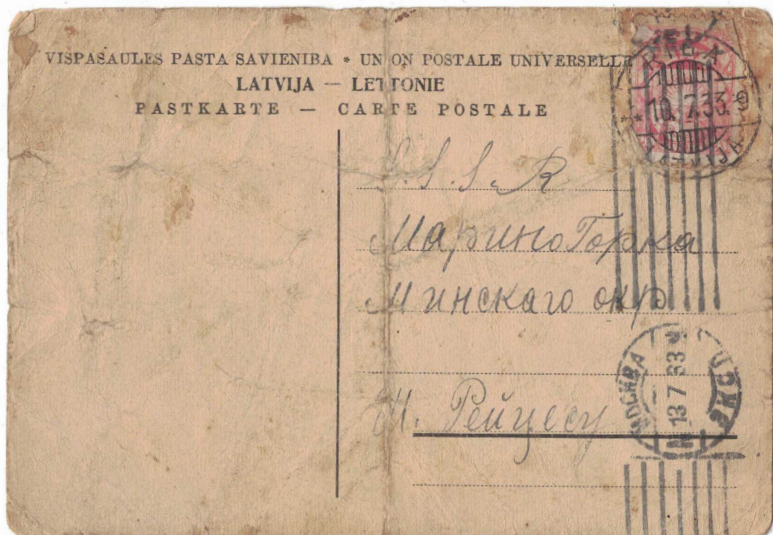 VISPASAULES PASTA SAVIENIBA * UNION POSTALE UNIVERSELLE
LATVIJA — LETTONIE
PASTKARTE — CARTE POSTALE
RIGA
10. 7.33. 9
LATVIJA
S.S.S.R
МариноГорка
Минскаго окр
МОСКВА
13 7 33
Рейцесу